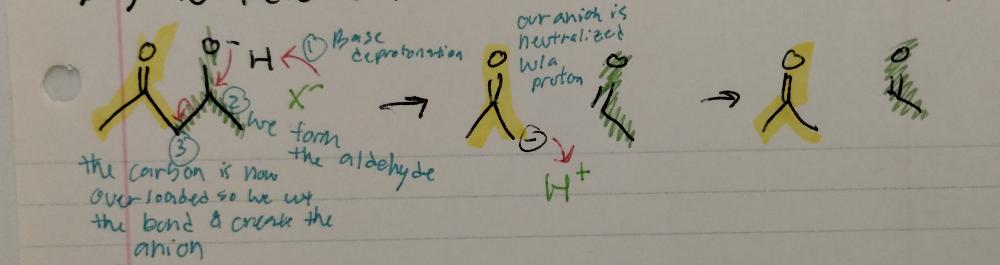 O
O⁻ H
① Base
deprotonation
X⁻
② we form
the aldehyde
③
the carbon is now
overloaded so we cut
the bond & create the
anion
our anion is
neutralized
w/a
proton
O
O
⊖
H⁺
O
O